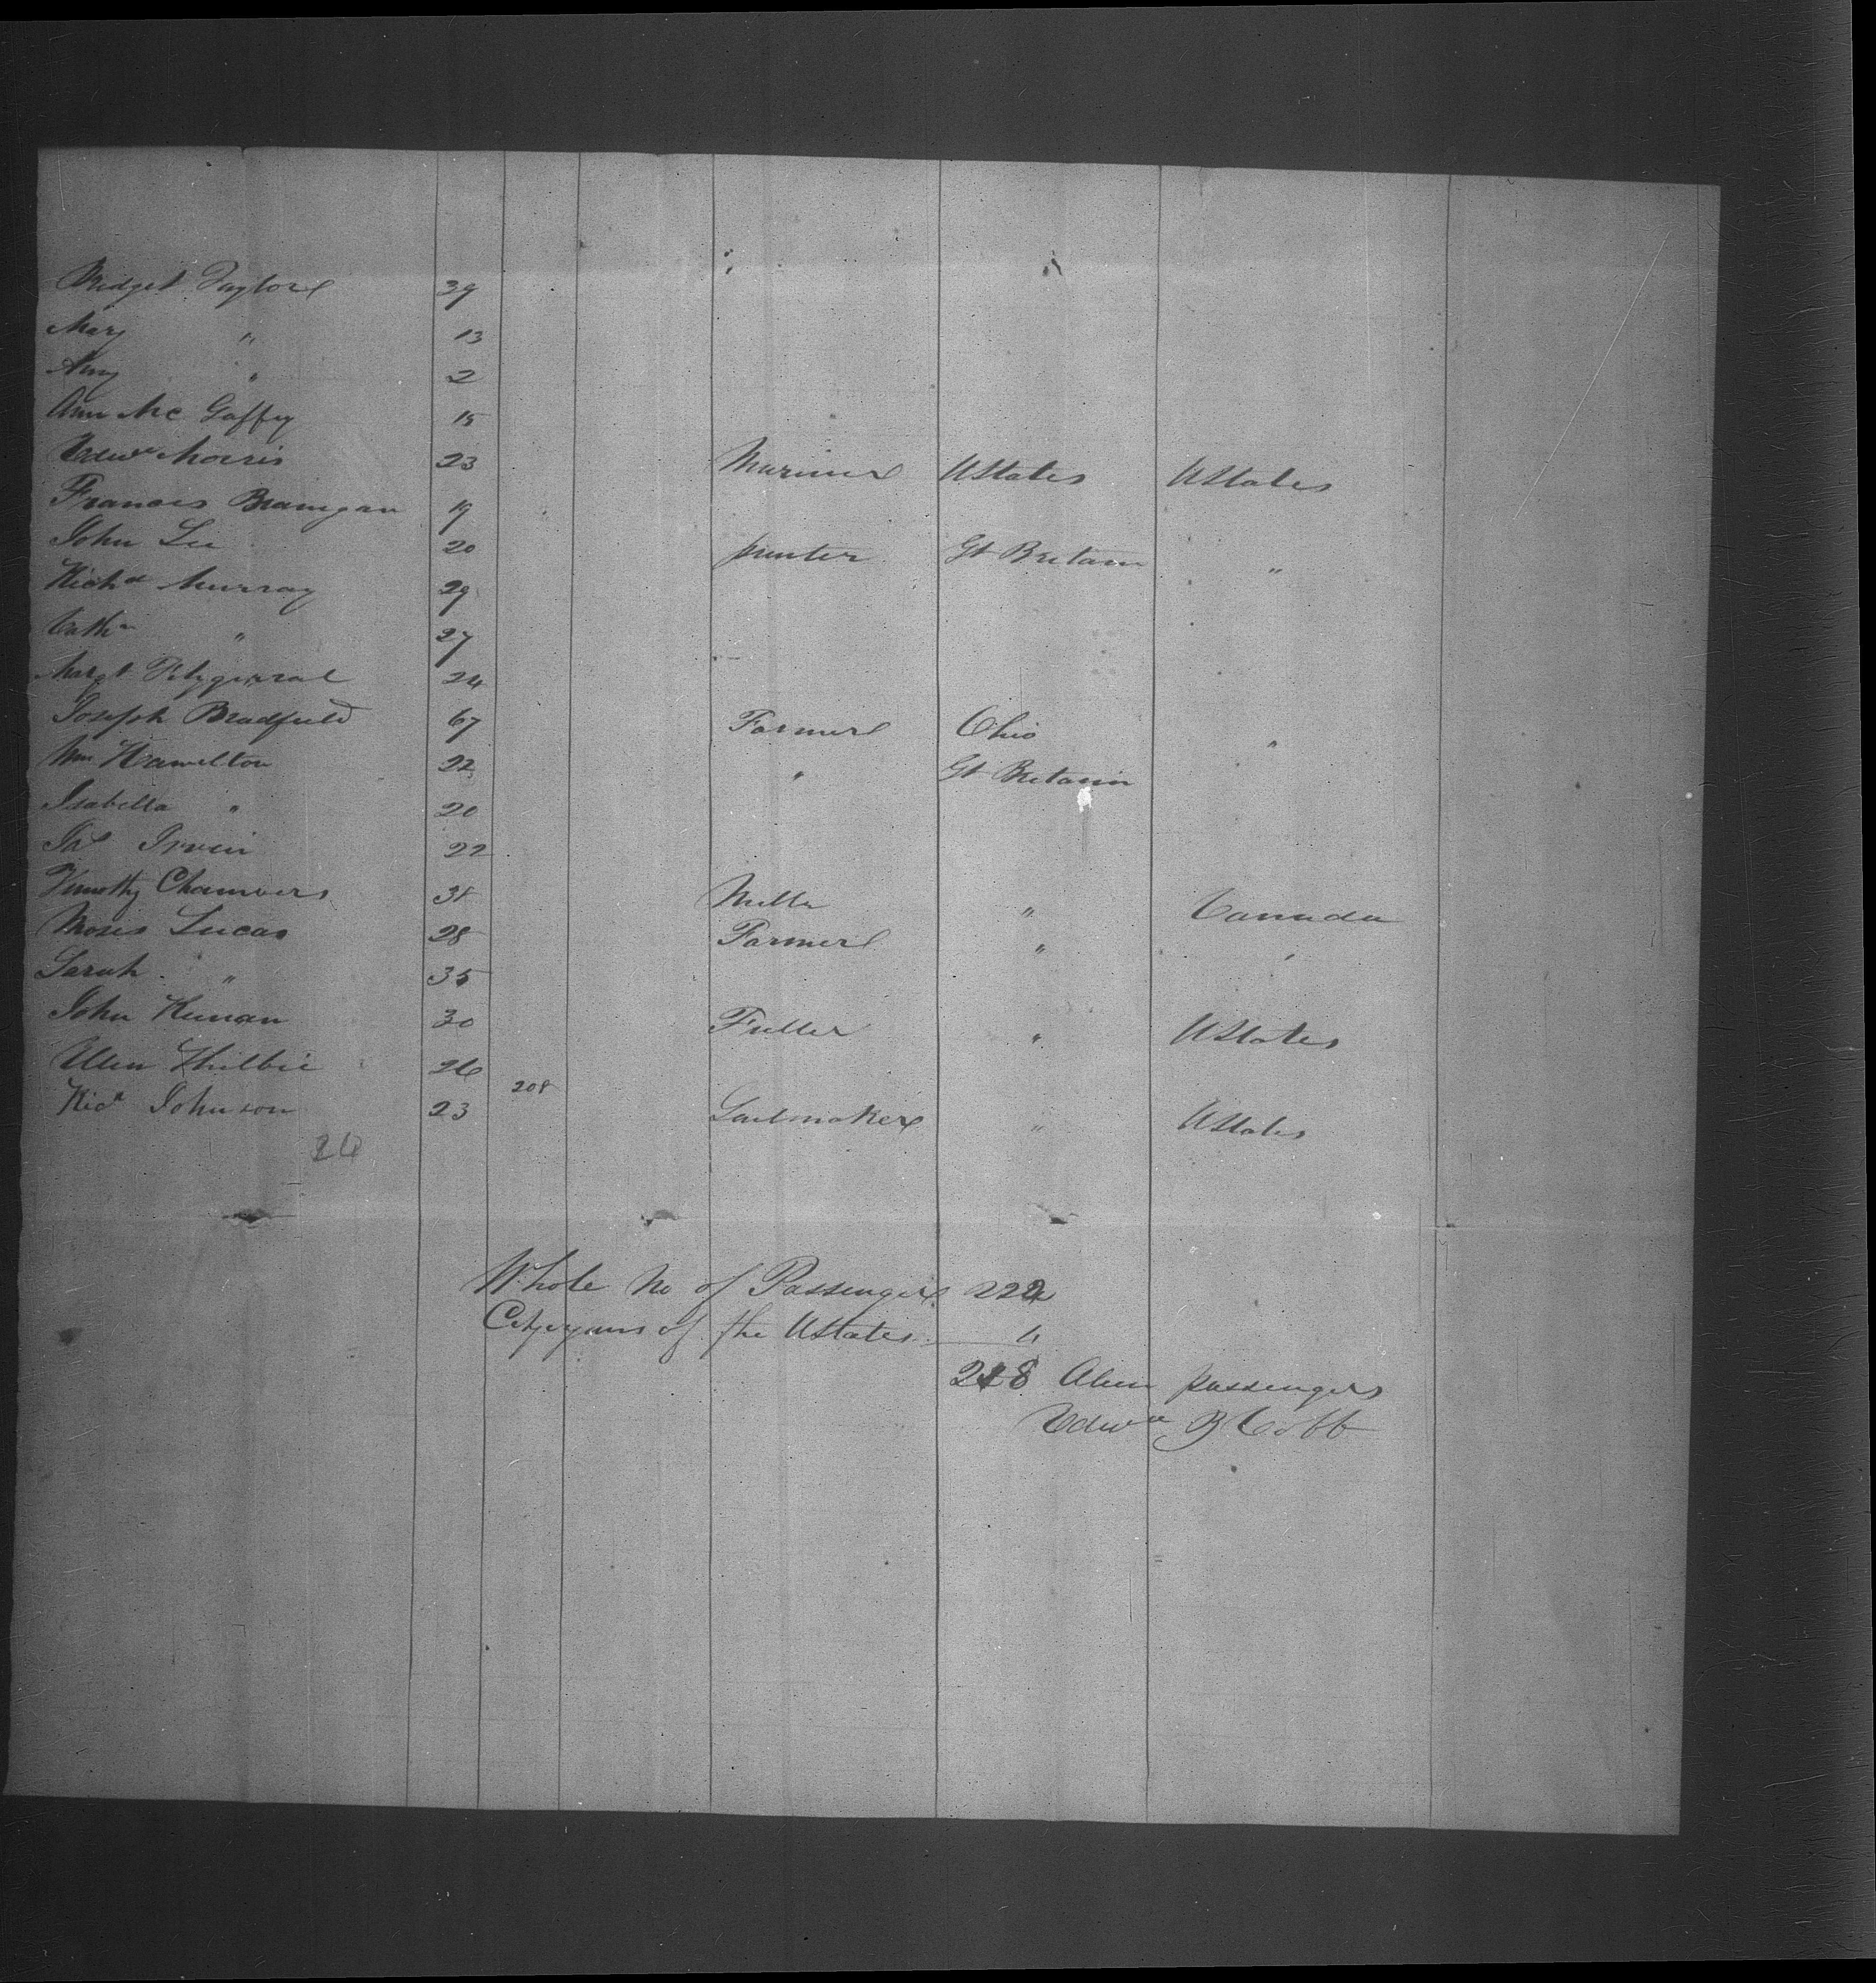 Bridget Taylor 39
Mary " 13
Amy " 2
Ann Mc Gaffey 15
Edwd Morris 23 Mariner UStates UStates
Francis Branigan 19
John Lee 20 printer Gt Bretain "
Richd Murray 29
Cathn " 27
Margt Fitzgerral 24
Joseph Bradfield 67 Farmer Ohio "
Wm Hamelton 22 " Gt Bretain
Isabella " 20
Jas Irwin 22
Timothy Chamvers 38 Miller " Canada
Moses Lucas 28 Farmer " "
Sarah " 35
John Keenan 30 Fuller " UStates
Ellen 26
208
Ricd Johnson 23 Sailmaker " UStates
20
Whole No of Passengers 222
Citizens of the UStates 4
218 Alien passengers
Edwd B Cobb